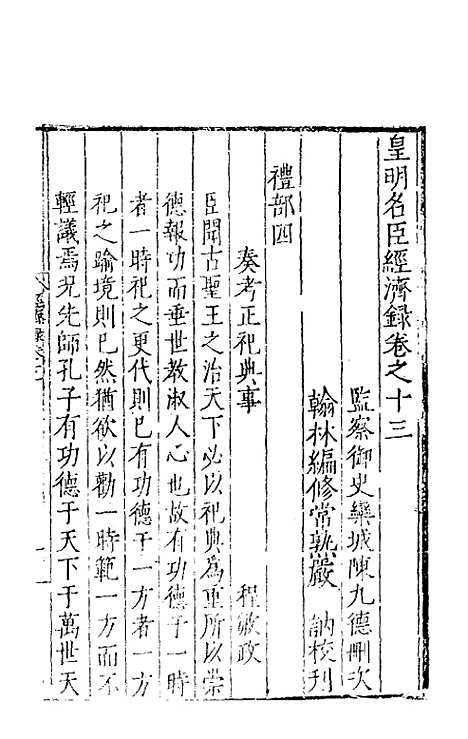 皇明名臣經濟錄卷之十三
監察御史欒城陳九德刪次
翰林編修常熟嚴 訥校刊
禮部四
奏考正祀典事 程敏政
臣聞古聖王之治天下必以祀典為重所以崇
德報功而垂世教淑人心也故有功德于一時
者一時祀之更代則已有功德于一方者一方
祀之踰境則已然猶欲以勸一時範一方而不
輕議焉况先師孔子有功德于天下于萬世天